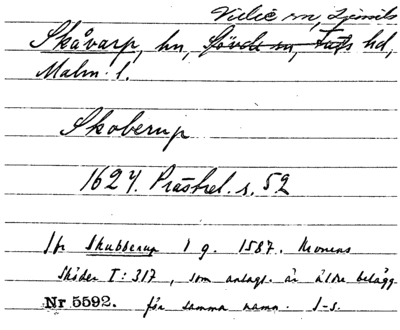 Velie sn, Ljunits
Skåvarp, hn, Sövde sn, Färs hd,
Malm. l.
Skoberup
1624. Prästrel. s. 52
Jfr Skubberup 1 g. 1587. Kronans
Skøder I: 317, som antagl. är äldre belägg
Nr 5592. för samma namn. I-s.